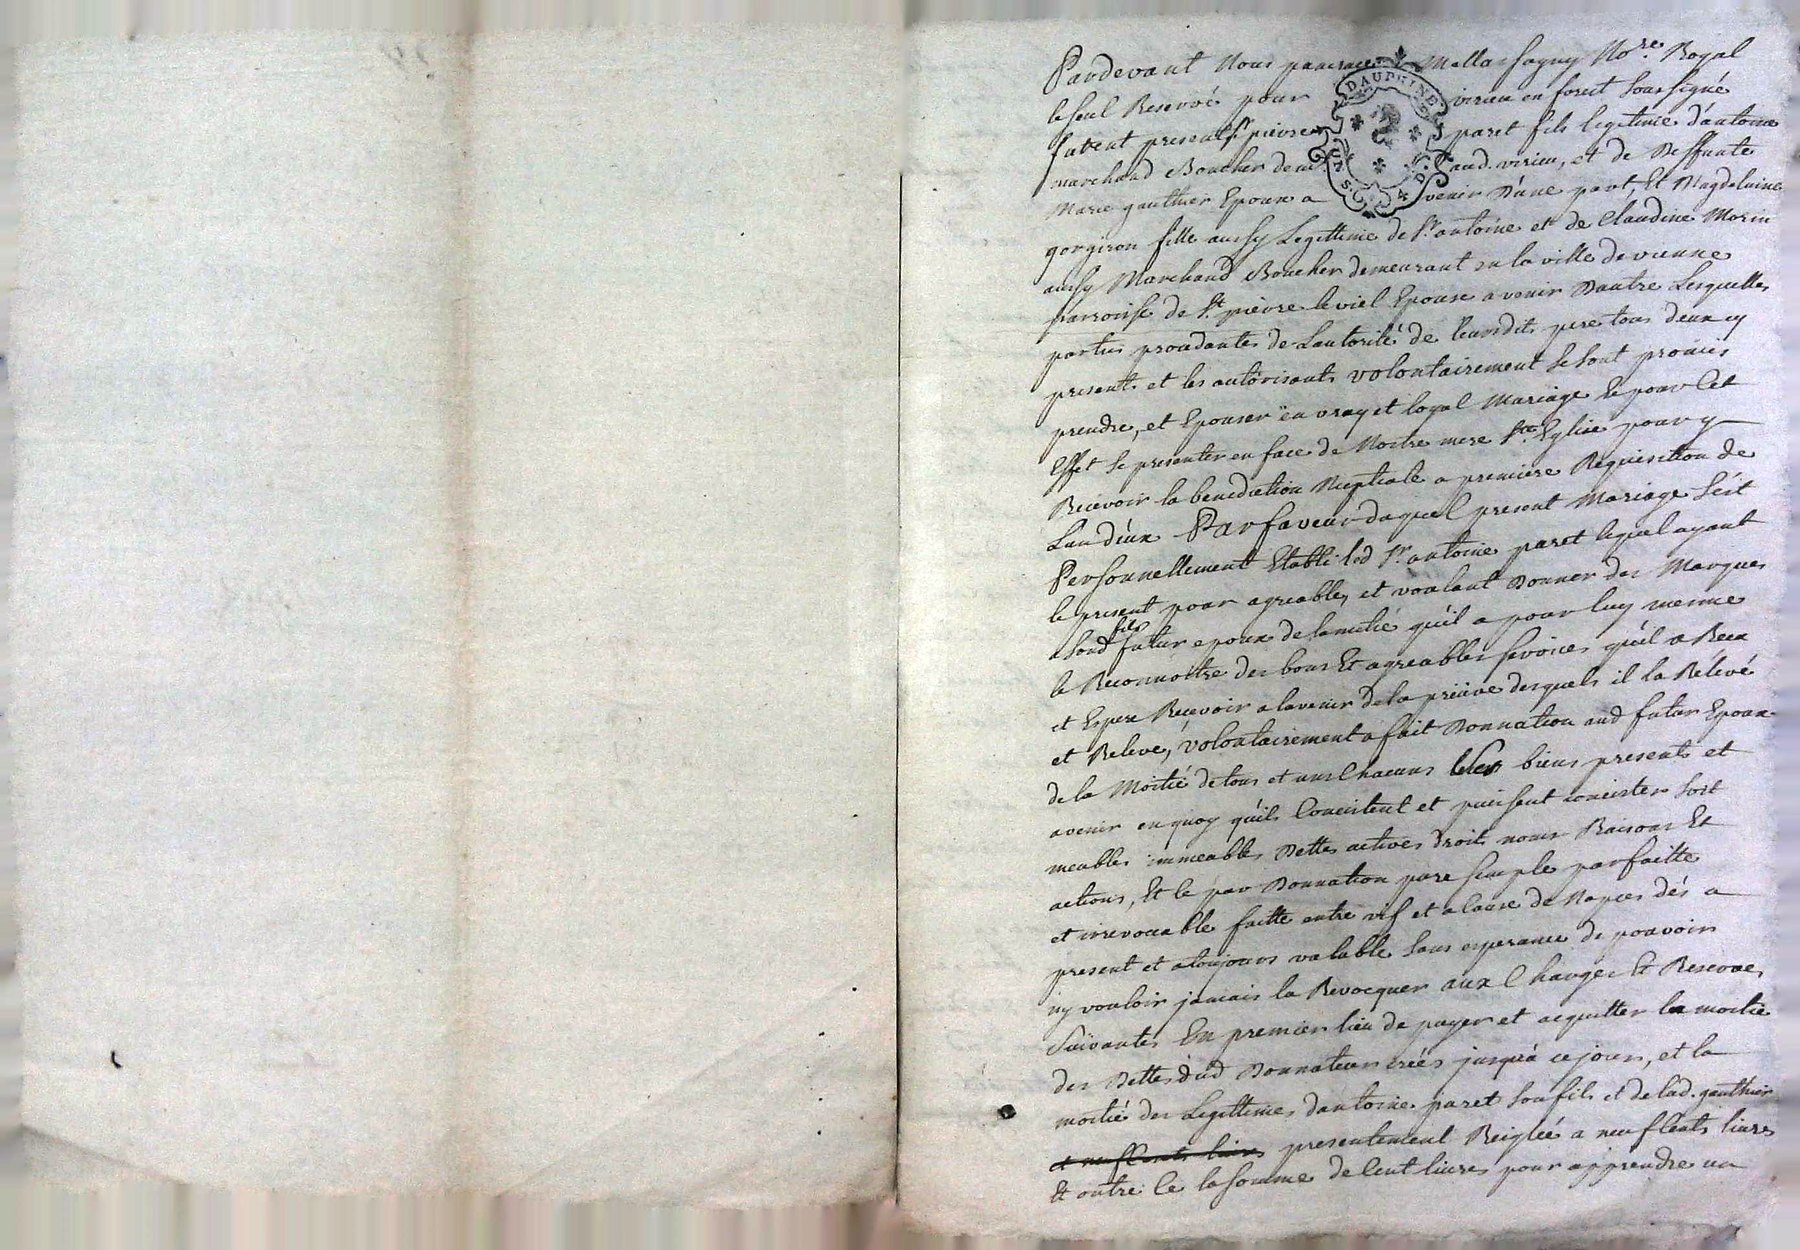 Pardevant Nous Mellarsagny No.re Royal
le seul Reservé pour virieu en forest soussigné
furent presents Sr pierre paret fils legitime d'antoine
marchand Boucher aud. virieu, et de Deffunte
Marie gauthier Epoux a venir D'une part, Et Magdelaine
gorgiron fille aussy Legittime de Sr antoine et de Claudine Morin
aussy Marchand Boucher demeurant en la ville de vienne
parroisse de St. pierre le viel Epouse a venir Dautre Lesquelles
parties procedantes de Lautorité de leursdits pere tous deux cy
presents et les autorisants volontairement se sont promis
prendre, et Epouser en vray et loyal Mariage Et pour Cet
Effet se presenter en face de Nostre mere Ste Eglise pour y
Recevoir la benediction Nuptiale a premiere Requisition de
Lun d'eux Par faveur duquel present Mariage s'est
Personnellement Etabli led Sr antoine paret lequel ayant
le present pour agreable, et voulant Donner des Marques
a sond fils futur epoux de lamitié qu'il a pour luy meme
le Reconnoitre des bons Et agreables services qu'il a Reçu
et Espere Recevoir a lavenir de la preuve desquels il la Relevé
et Releve, volontairement a fait Donnation aud futur Epoux
de la Moitié de tous et uns Chacuns ses biens presents et
avenir en quoy qu'ils Consistent et puissent consister soit
meubles immeubles Dettes actives droits noms Raisons Et
actions, Et ce par Donnation pure simple parfaitte
et irrevocable faitte entre vif et a Cause de Nopces dés a
present et a toujours valable sans esperance de pouvoir
ny vouloir jamais la Revocquer aux Charges Et Reserves
Suivantes En premier lieu de payer et acquitter la moitié
des Dettes dud Donnateur créés jusqu'à ce jour, et la
moitié des Legittimes dantoine paret son fils et de lad. gauthier
et neuf Cents livres presentement Reiglée a neuf Cents livres
Et outre Ce la somme de Cent livres pour apprendre un
DAUPHINE
UN S. 4 D.